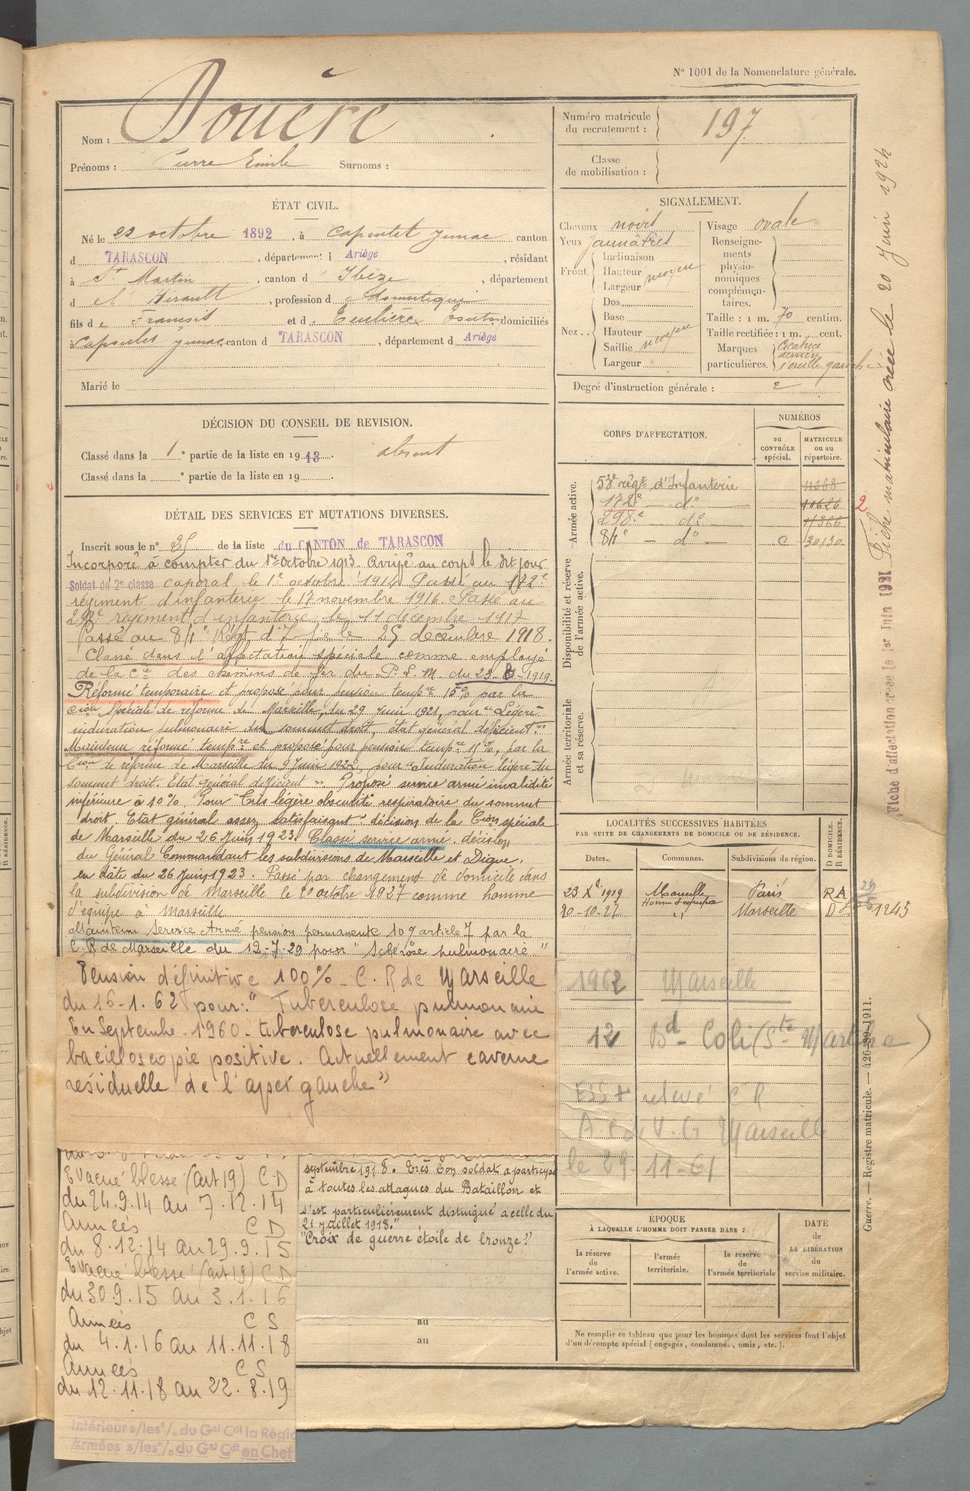 N° 1001 de la Nomenclature générale.
Nom : Douère
Prénoms : Pierre Emile Surnoms :
Numéro matricule du recrutement : 197
Classe de mobilisation :
ÉTAT CIVIL.
Né le 22 octobre 1892, à Capoulet Junac canton
d TARASCON, département d Ariège, résidant
à St Martin, canton d, département
d e l'Hérault, profession de domestique
fils de et d, domiciliés
à Capoulet Junac canton d TARASCON, département d Ariège
Marié le
SIGNALEMENT.
Cheveux noirs
Yeux jaunâtres
Front. Inclinaison
Hauteur moyen
Largeur
Nez.. Dos
Base
Hauteur
Saillie moyen
Largeur
Visage ovale
Renseignements physionomiques complémentaires.
Taille : 1 m. 70 centim.
Taille rectifiée : 1 m. cent.
Marques particulières. Cicatrice gauche
Degré d'instruction générale : 2
DÉCISION DU CONSEIL DE REVISION.
Classé dans la 1e partie de la liste en 1913. absent
Classé dans la e partie de la liste en 19
CORPS D'AFFECTATION.
NUMÉROS
au CONTRÔLE spécial.
MATRICULE ou au répertoire.
Armée active.
53e régt d'Infanterie
172e — do —
298e — do —
84e — do — 30130
Disponibilité et réserve de l'armée active.
Armée territoriale et sa réserve.
DÉTAIL DES SERVICES ET MUTATIONS DIVERSES.
Inscrit sous le n° 25 de la liste du CANTON de TARASCON
Incorporé à compter du 1er octobre 1913. Arrivé au corps le dit jour
Soldat de 2e classe caporal le 1er octobre 1914 Passé au 172e
régiment d'infanterie le 17 novembre 1916. Passé au
298e régiment d'infanterie le décembre 1917
Passé au 84e Régt d' le 25 décembre 1918.
Classé dans l'affectation spéciale comme employé
de la Cie des chemins de fer du P. L. M. du 23 1919.
Réformé temporaire et proposé pour pension tempre 15% par la
Cion spéciale de réforme de Marseille, du 29 Juin 1921, pour "Légère
induration pulmonaire du sommet droit, état général déficient."
Maintenu réformé tempre et proposé pour pension tempre 15%, par la
Cion de réforme de Marseille du 9 Juin 1922, pour "Induration légère du
sommet droit. Etat général déficient" - Proposé service armé invalidité
inférieure à 10%. Pour "Très légère obscurité respiratoire du sommet
droit. Etat général assez satisfaisant" décision de la Cion spéciale
de Marseille du 26 Juin 1923. Classé service armé, décision
du Général Commandant les subdivisions de Marseille et Digne,
en date du 26 Juin 1923. Passé par changement de domicile dans
la subdivision de Marseille le 20 octobre 1927 comme homme
d'équipe à Marseille
Maintenu Service Armé pension permanente 10% article 7 par la
C. R de Marseille du 12-7-29 pour "Sclérose pulmonaire"
Pension définitive 100% - C. R de Marseille
du 16-1.62 pour: "Tuberculose pulmonaire
En Septembre 1960 - tuberculose pulmonaire avec
bacilloscopie positive. Actuellement caverne
résiduelle de l'apex gauche"
Evacué blessé (art 19) C D
du 24.9.14 au 7.12.14
Armées C D
du 8.12.14 au 29.9.15
Evacué blessé (art 19) C D
du 30.9.15 au 3.1.16
Armées C S
du 4.1.16 au 11.11.18
Armées C S
du 12.11.18 au 22.8.19
Intérieur s/les % du Gal Cdt la Régio
Armées s/les % du Gal Cdt en Chef
septembre 1918. Très bon soldat a participé
à toutes les attaques du Bataillon et
s'est particulièrement distingué à celle du
21 juillet 1918."
"Croix de guerre étoile de bronze"
au
au
LOCALITÉS SUCCESSIVES HABITÉES
PAR SUITE DE CHANGEMENTS DE DOMICILE OU DE RÉSIDENCE.
Dates. Communes. Subdivisions de région. D DOMICILE. R RÉSIDENCE.
23 Xe 1919 Marseille Paris RA
Homme d'équipe
20-10-27 " Marseille D 1245
1962 Marseille
12 Bd Coli (Ste Marthe)
relevé C R
Marseille
le 29-11-61
ÉPOQUE
À LAQUELLE L'HOMME DOIT PASSER DANS :
la réserve de l'armée active.
l'armée territoriale.
la réserve de l'armée territoriale
DATE de LA LIBÉRATION du service militaire.
Ne remplir ce tableau que pour les hommes dont les services font l'objet
d'un décompte spécial (engagés, condamnés, omis, etc.).
Fiche matriculaire créée le 20 Juin 1924
Fiche d'affectation créée le 1er Juin 1921
Guerre. — Registre matricule. — 426-29-1911.